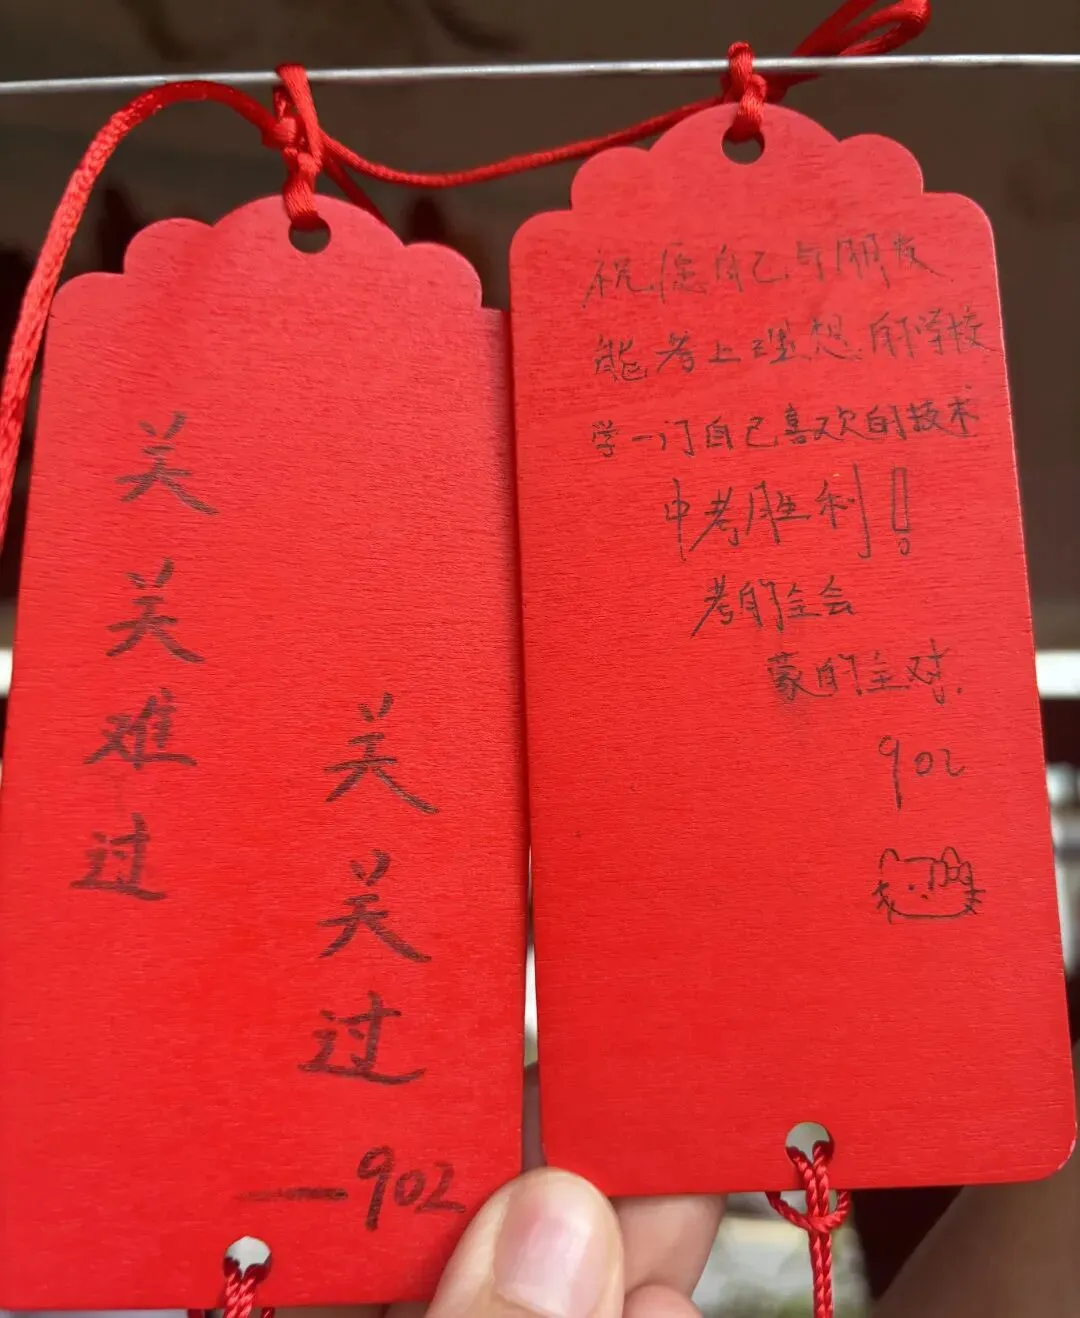 关关难过
关关过
——902
祝愿自己与朋友
能考上理想的学校
学一门自己喜欢的技术
中考胜利！
考的全会
蒙的全对.
902